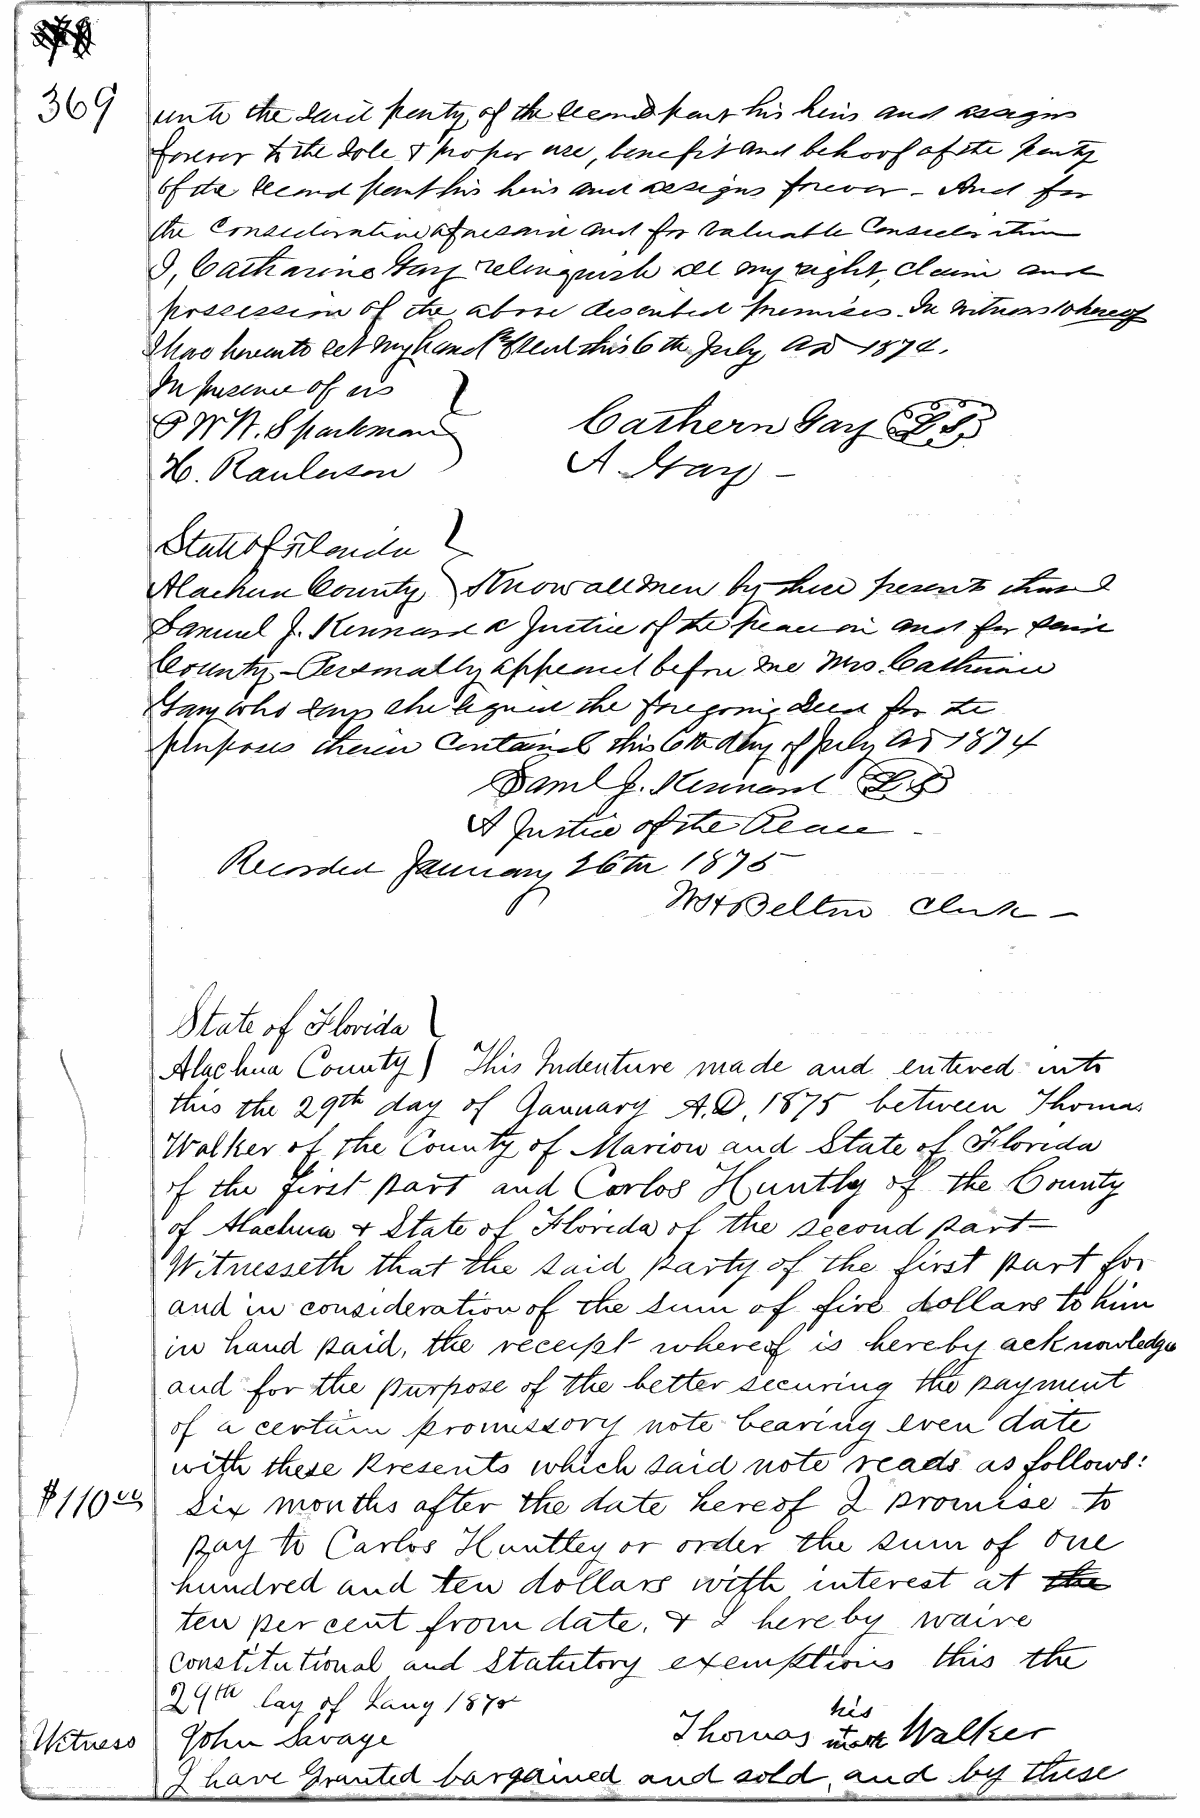 369
unto the said party of the second part his heirs and assigns
forever to the sole & proper use, benefit and behoof of the party
of the second part his heirs and assigns forever - And for
the Consideration aforesaid and for valuable Consideration
I, Catharine Gay relinquish all my right, claim and
possession of the above described premises. In witness whereof
I have hereunto set my hand & seal this 6th July AD 1874.
In presence of us
P W W. Sparkman
Cathern Gay L.S.
H. Raulerson
A. Gay -
State of Florida
Alachua County Know all men by these presents that I
Samuel J. Kennard a Justice of the peace in and for said
County - Personally appeared before me Mrs. Catharine
Gay who says she signed the foregoing Deed for the
purposes therein Contained this 6th day of July AD 1874
Saml J. Kennard L.S
A Justice of the Peace -
Recorded January 26th 1875
W H Belton Clerk -
State of Florida
Alachua County This Indenture made and entered into
this the 29th day of January A.D. 1875 between Thomas
Walker of the County of Marion and State of Florida
of the first part and Carlos Huntly of the County
of Alachua & State of Florida of the second part -
Witnesseth that the said party of the first part for
and in consideration of the sum of five dollars to him
in hand paid, the receipt whereof is hereby acknowledge
and for the purpose of the better securing the payment
of a certain promissory note bearing even date
with these presents which said note reads as follows:
$110.00 Six months after the date hereof I promise to
pay to Carlos Huntley or order the sum of one
hundred and ten dollars with interest at the
ten per cent from date. & I hereby waive
constitutional and Statutory exemptions this the
29th day of Jany 1875
Witness John Savage Thomas his + mark Walker
I have Granted bargained and sold, and by these